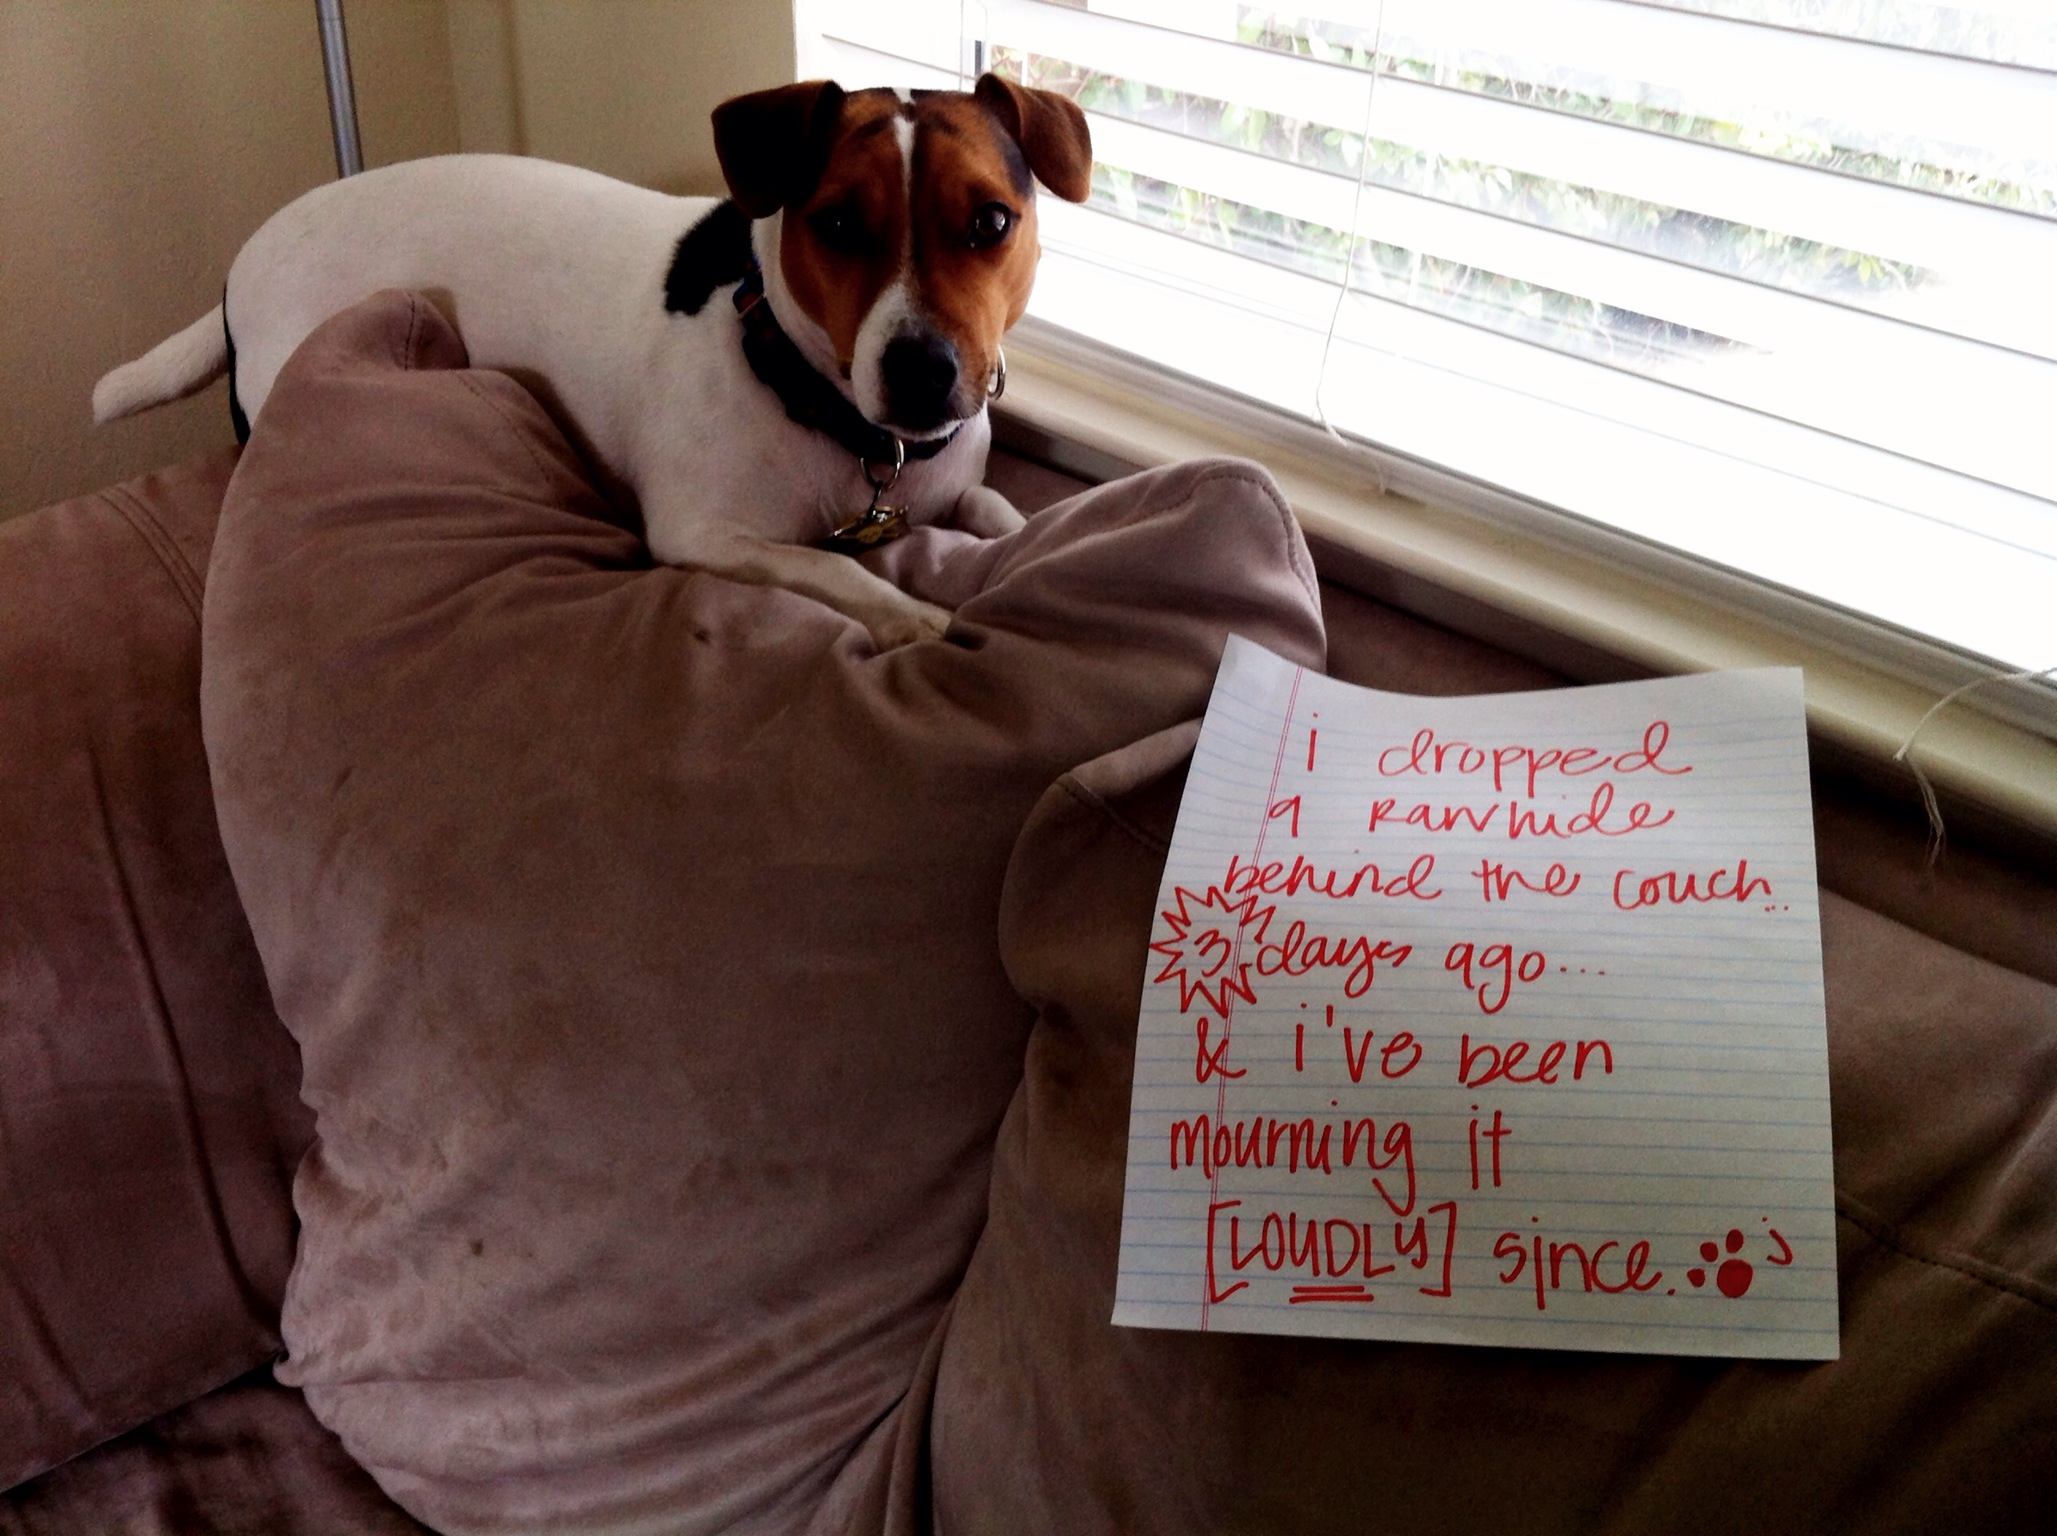 i dropped
a Rawhide
behind the couch...
3 days ago...
& i've been
mourning it
[LOUDLy] since. j